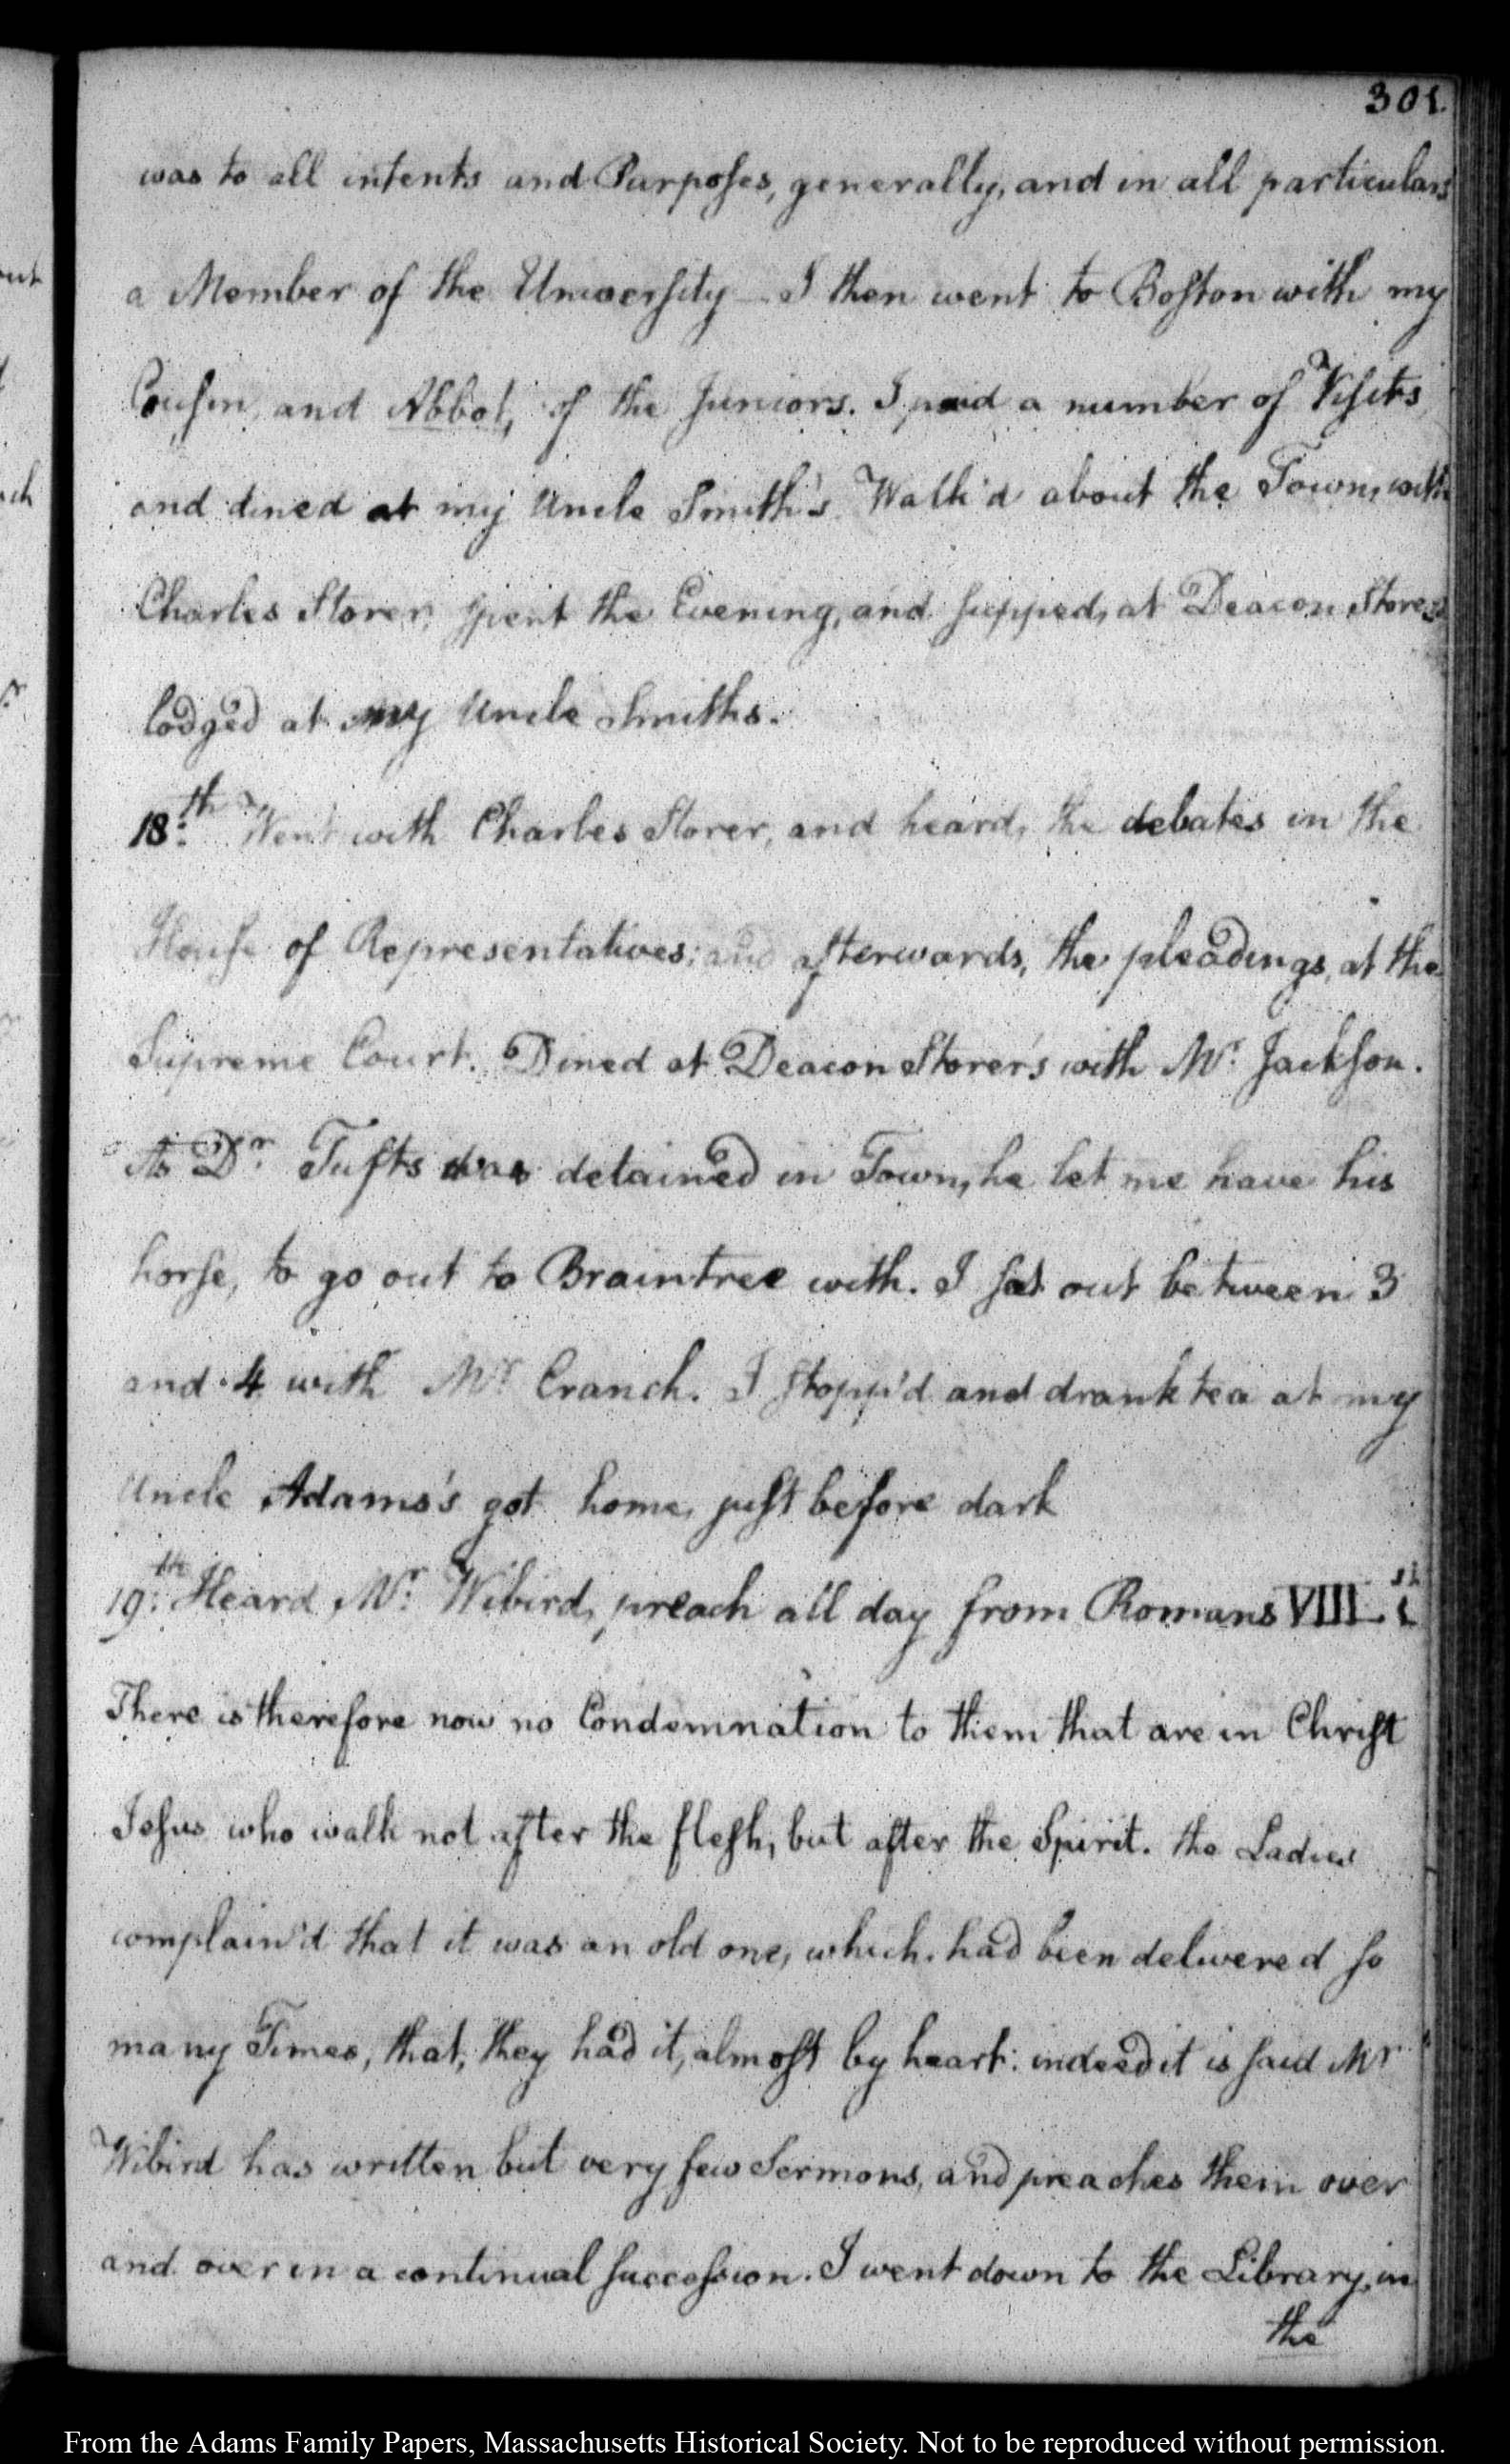 301.
was to all intents and Purposes, generally, and in all particulars
a Member of the University I then went to Boston with my
Cousin, and Abbot, of the Juniors. I paid a number of Visits
and dined at my Uncle Smith's Walk'd about the Town, with
Charles Storer, spent the Evening, and supped, at Deacon Storer's
lodged at my Uncle Smiths.
18th. Went with Charles Storer, and heard, the debates in the
House of Representatives; and afterwards, the pleadings, at the
Supreme Court. Dined at Deacon Storer's with Mr. Jackson.
As Dr. Tufts was detained in Town, he let me have his
horse, to go out to Braintree with. I set out between 3
and 4 with Mr. Cranch. I stopp'd and drank tea at my
Uncle Adams's got home, just before dark
19th. Heard Mr. Wibird, preach all day from Romans VIII. 1st
There is therefore now no Condemnation to them that are in Christ
Jesus who walk not after the flesh, but after the Spirit. the Ladies
complain'd that it was an old one, which had been delivered so
many Times, that, they had it, almost by heart: indeed it is said Mr
Wibird has written but very few Sermons, and preaches them over
and over in a continual succession. I went down to the Library, in
the
From the Adams Family Papers, Massachusetts Historical Society. Not to be reproduced without permission.